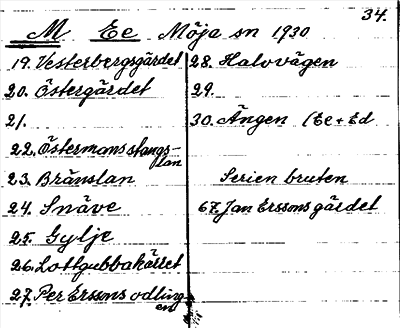 34.
M Ee Möja sn 1930
19. Vesterbergsgärdet
20. Östergärdet
21.
22. Östermansstangs-
plan
23. Bränslan
24. Snäve
25. Gylje
26. Lottgubbakärret
27. Per Erssons odling
en
28. Halvvägen
29.
30. Ängen (Ee + Ed
Serien bruten
67. Jan Erssons gärdet